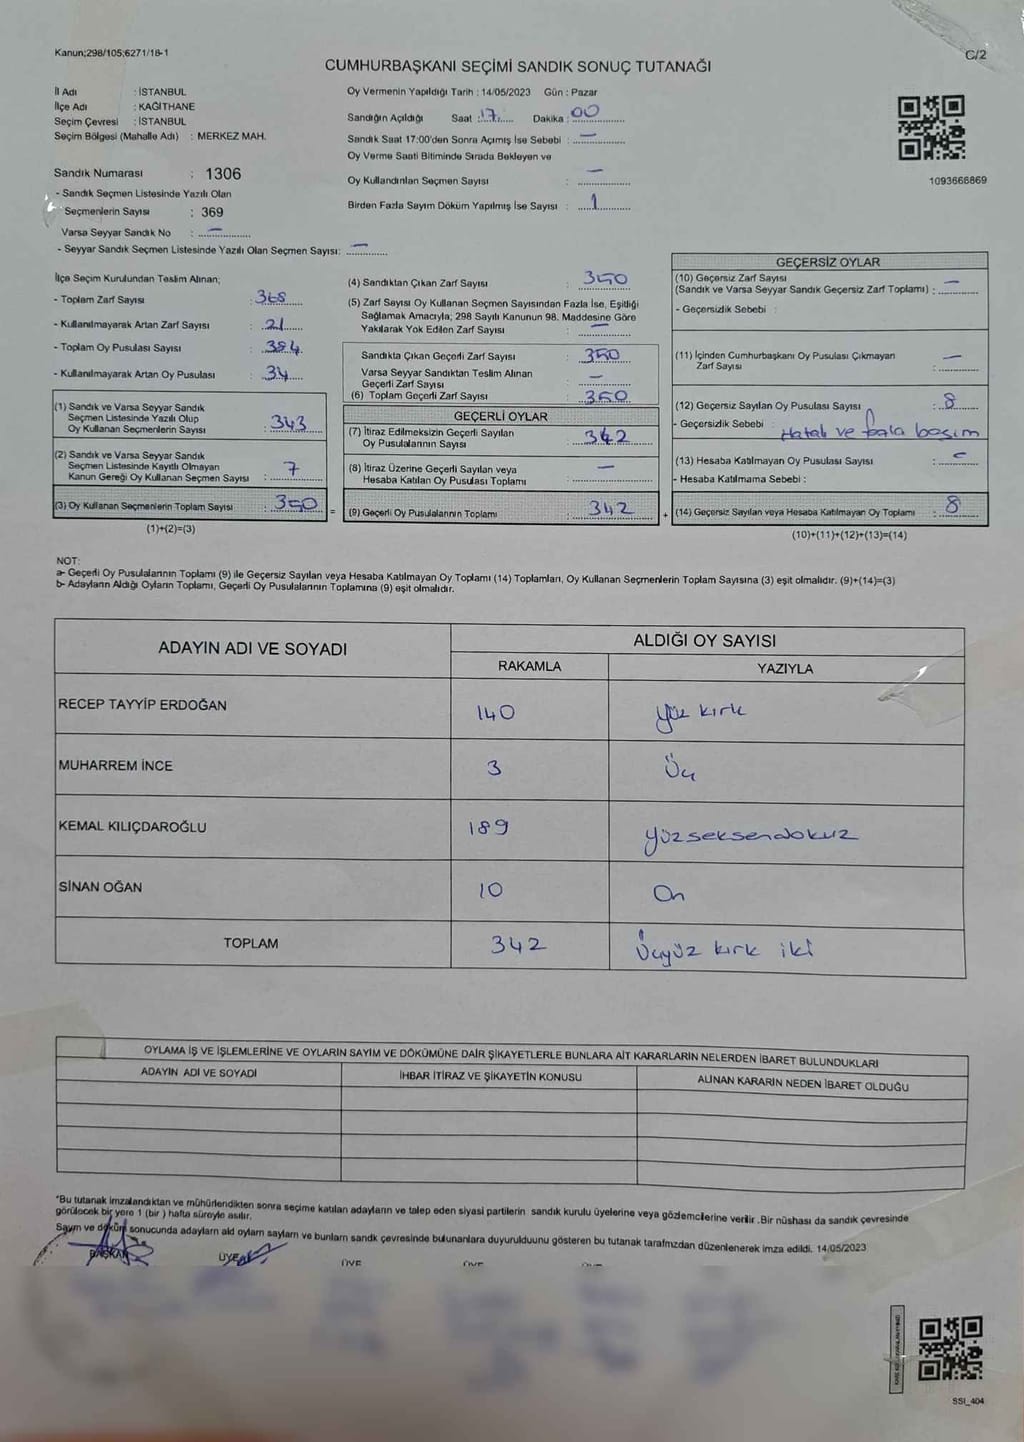 Kanun;298/105;6271/18-1
C/2
CUMHURBAŞKANI SEÇİMİ SANDIK SONUÇ TUTANAĞI
İl Adı : İSTANBUL
İlçe Adı : KAĞITHANE
Seçim Çevresi : İSTANBUL
Seçim Bölgesi (Mahalle Adı) : MERKEZ MAH.
Oy Vermenin Yapıldığı Tarih : 14/05/2023 Gün : Pazar
Sandığın Açıldığı Saat : 17 Dakika : 00
Sandık Saat 17:00'den Sonra Açımış İse Sebebi : —
Oy Verme Saati Bitiminde Sırada Bekleyen ve
Oy Kullandırılan Seçmen Sayısı : —
Birden Fazla Sayım Döküm Yapılmış İse Sayısı : 1
1093666869
Sandık Numarası : 1306
- Sandık Seçmen Listesinde Yazılı Olan
Seçmenlerin Sayısı : 369
Varsa Seyyar Sandık No : —
- Seyyar Sandık Seçmen Listesinde Yazılı Olan Seçmen Sayısı: —
İlçe Seçim Kurulundan Teslim Alınan;
- Toplam Zarf Sayısı : 368
- Kullanılmayarak Artan Zarf Sayısı : 21
- Toplam Oy Pusulası Sayısı : 384
- Kullanılmayarak Artan Oy Pusulası : 34
(1) Sandık ve Varsa Seyyar Sandık
Seçmen Listesinde Yazılı Olup
Oy Kullanan Seçmenlerin Sayısı : 343
(2) Sandık ve Varsa Seyyar Sandık
Seçmen Listesinde Kayıtlı Olmayan
Kanun Gereği Oy Kullanan Seçmen Sayısı : 7
(3) Oy Kullanan Seçmenlerin Toplam Sayısı : 350 =
(1)+(2)=(3)
(4) Sandıktan Çıkan Zarf Sayısı : 350
(5) Zarf Sayısı Oy Kullanan Seçmen Sayısından Fazla İse, Eşitliği
Sağlamak Amacıyla; 298 Sayılı Kanunun 98. Maddesine Göre
Yakılarak Yok Edilen Zarf Sayısı : —
Sandıkta Çıkan Geçerli Zarf Sayısı : 350
Varsa Seyyar Sandıktan Teslim Alınan
Geçerli Zarf Sayısı : —
(6) Toplam Geçerli Zarf Sayısı : 350
GEÇERLİ OYLAR
(7) İtiraz Edilmeksizin Geçerli Sayılan
Oy Pusulalarının Sayısı : 342
(8) İtiraz Üzerine Geçerli Sayılan veya
Hesaba Katılan Oy Pusulası Toplamı : —
(9) Geçerli Oy Pusulalarının Toplamı : 342 +
GEÇERSİZ OYLAR
(10) Geçersiz Zarf Sayısı
(Sandık ve Varsa Seyyar Sandık Geçersiz Zarf Toplamı) : —
- Geçersizlik Sebebi :
(11) İçinden Cumhurbaşkanı Oy Pusulası Çıkmayan
Zarf Sayısı : —
(12) Geçersiz Sayılan Oy Pusulası Sayısı : 8
- Geçersizlik Sebebi : Hatalı ve fazla basım
(13) Hesaba Katılmayan Oy Pusulası Sayısı : –
- Hesaba Katılmama Sebebi :
(14) Geçersiz Sayılan veya Hesaba Katılmayan Oy Toplamı : 8
(10)+(11)+(12)+(13)=(14)
NOT:
a- Geçerli Oy Pusulalarının Toplamı (9) ile Geçersiz Sayılan veya Hesaba Katılmayan Oy Toplamı (14) Toplamları, Oy Kullanan Seçmenlerin Toplam Sayısına (3) eşit olmalıdır. (9)+(14)=(3)
b- Adayların Aldığı Oyların Toplamı, Geçerli Oy Pusulalarının Toplamına (9) eşit olmalıdır.
ADAYIN ADI VE SOYADI
ALDIĞI OY SAYISI
RAKAMLA YAZIYLA
RECEP TAYYİP ERDOĞAN 140 Yüz kırk
MUHARREM İNCE 3 Üç
KEMAL KILIÇDAROĞLU 189 Yüzseksendokuz
SİNAN OĞAN 10 On
TOPLAM 342 Üçyüz kırk iki
OYLAMA İŞ VE İŞLEMLERİNE VE OYLARIN SAYIM VE DÖKÜMÜNE DAİR ŞİKAYETLERLE BUNLARA AİT KARARLARIN NELERDEN İBARET BULUNDUKLARI
ADAYIN ADI VE SOYADI İHBAR İTİRAZ VE ŞİKAYETİN KONUSU ALINAN KARARIN NEDEN İBARET OLDUĞU
"Bu tutanak imzalandıktan ve mühürlendikten sonra seçime katılan adayların ve talep eden siyasi partilerin sandık kurulu üyelerine veya gözlemcilerine verilir .Bir nüshası da sandık çevresinde
görülecek bir yere 1 (bir ) hafta süreyle asılır.
Sayım ve döküm sonucunda adayların ald oyların sayların ve bunların sandk çevresinde bulunanlara duyurulduunu gösteren bu tutanak tarafmzdan düzenlenerek imza edildi. 14/05/2023
BAŞKAN ÜYE ÜYE ÜYE
SSI_404